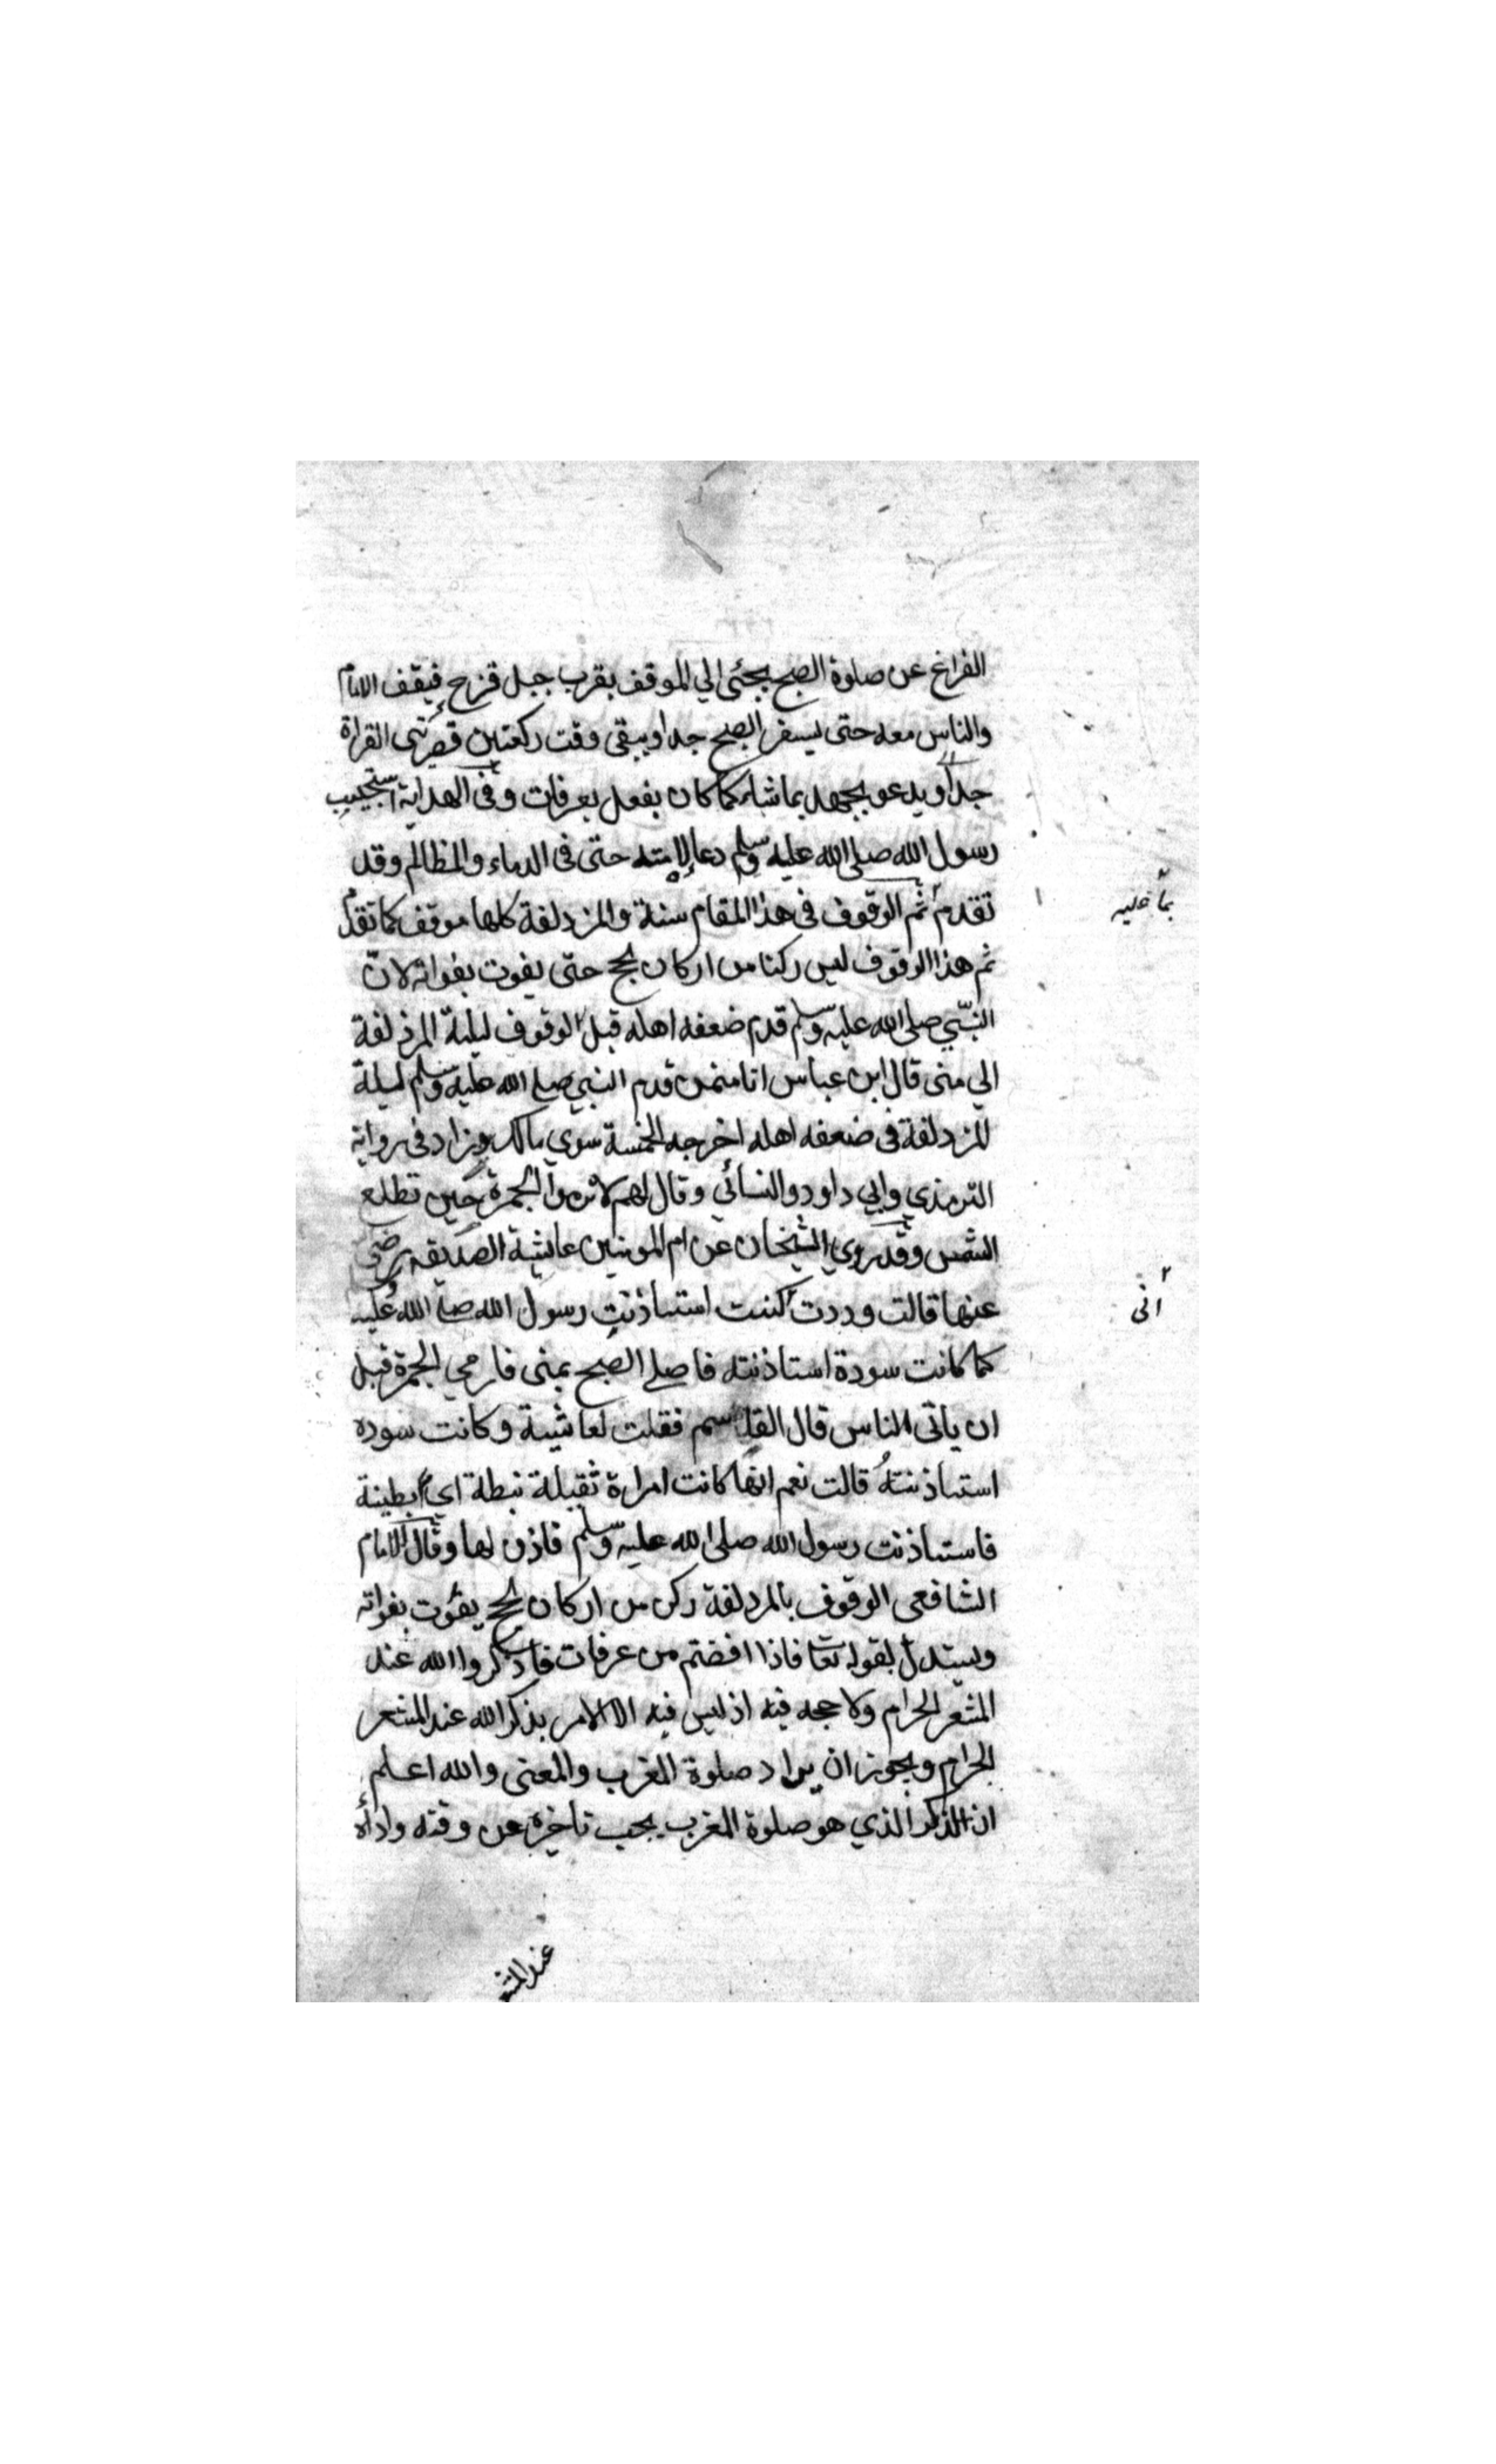 الفراغ عن صلوة الصبح يجئ الي الموقف بقرب جبل قزح فيقف الامام
والناس معه حتى يسفر الصبح جدا ويبقى وقت ركعتين قصرتى القراة
جدا ويدعو بجهد بما شاء كما كان يفعل بعرفات وفي الهداية استجيب
رسول الله صلى الله عليه وسلم دعا لامته حتى فى الدماء والمظالم وقد
تقدم ثم الوقوف فى هذا المقام سنة والمزدلفة كلها موقف كما تقدم
بما عليه
ثم هذا الوقوف ليس ركنا من اركان الحج حتى يفوت بفواته لان
النبي صلى الله عليه وسلم قدم ضعفه اهله قبل الوقوف ليلة المزدلفة
الي منى قال ابن عباس انا ممن قدم النبي صلى الله عليه وسلم ليلة
المزدلفة فى ضعفه اهله اخرجه الخمسة سوي مالك وزاد فى رواية
الترمذي وابي داود والنسائي وقال لهم لا ترموا الجمرة حين تطلع
الشمس وقد روي الشيخان عن ام المومنين عايشة الصديقه رضي
عنها قالت وددت كنت استاذنت رسول الله صلى الله عليه
انى
كما كانت سودة استاذنته فاصلي الصبح بمنى فارمي الجمرة قبل
ان ياتى الناس قال القاسم فقلت لعايشة وكانت سوده
استاذنته قالت نعم انها كانت امراة ثقيلة ثبطة اي بطيئة
فاستاذنت رسول الله صلى الله عليه وسلم فاذن لها وقال الامام
الشافعى الوقوف بالمزدلفة ركن من اركان الحج يفوت بفواته
ويستدل بقوله تعا فاذا افضتم من عرفات فاذكروا الله عند
المشعر الحرام ولا حجه فيه اذ ليس فيه الا الامر بذكر الله عند المشعر
الحرام ويجوز ان يراد صلوة المغرب والمعنى والله اعلم
ان الذكر الذي هو صلوة المغرب يجب تاخيره عن وقته واداه
عند المشعر